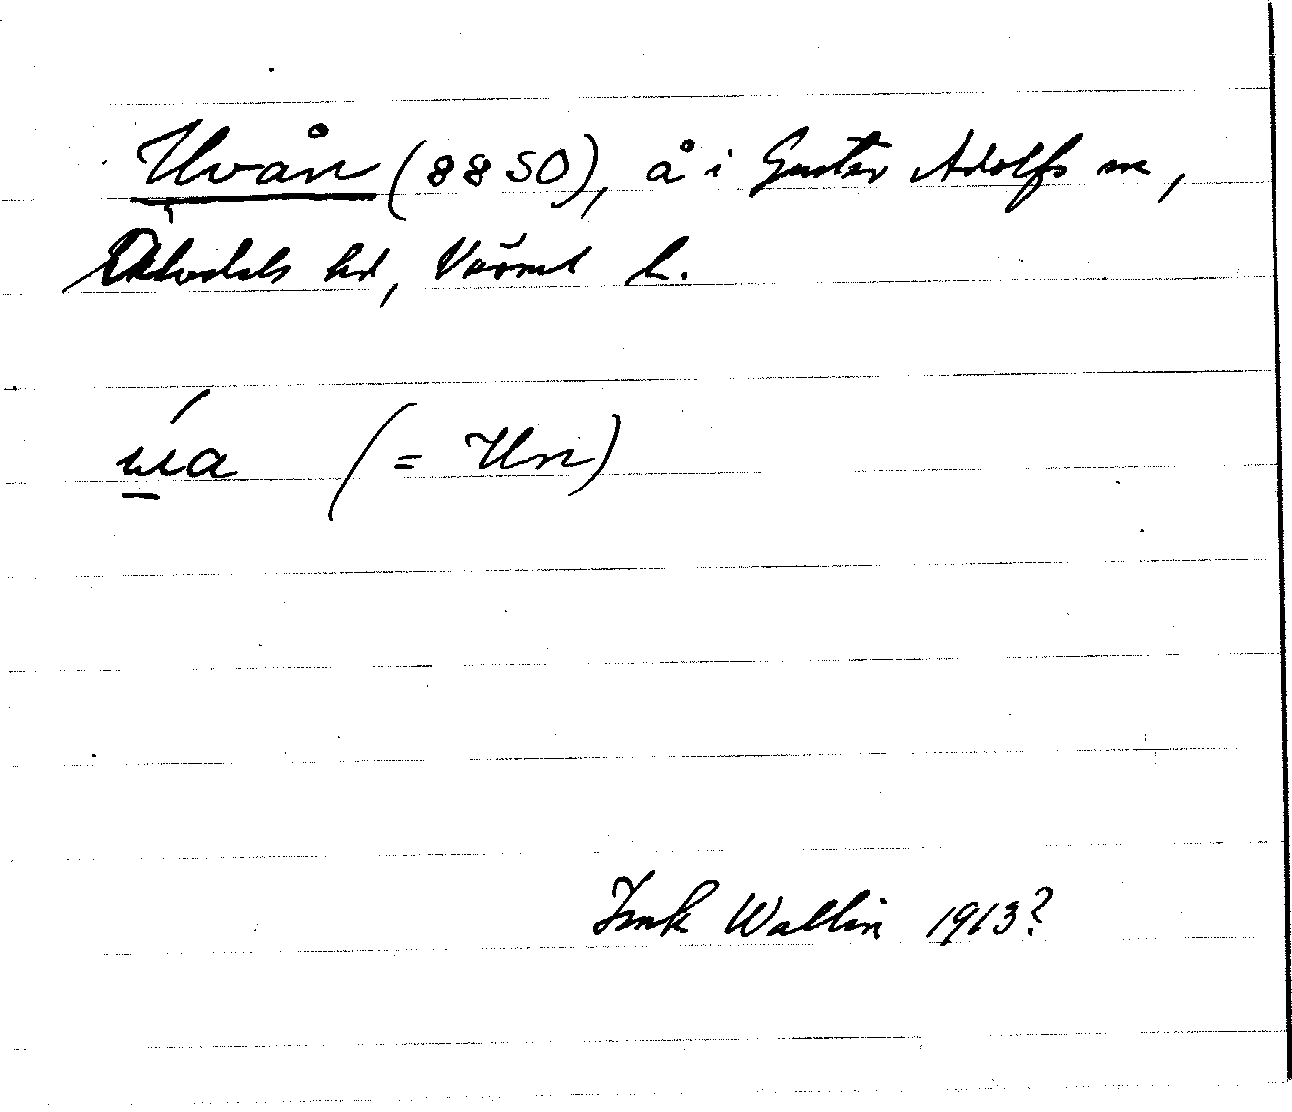 Uvån (8850), å i Gustav Adolfs sn,
Älvdals hd, Värml l.
úa (= Un)
Wallin 1913?